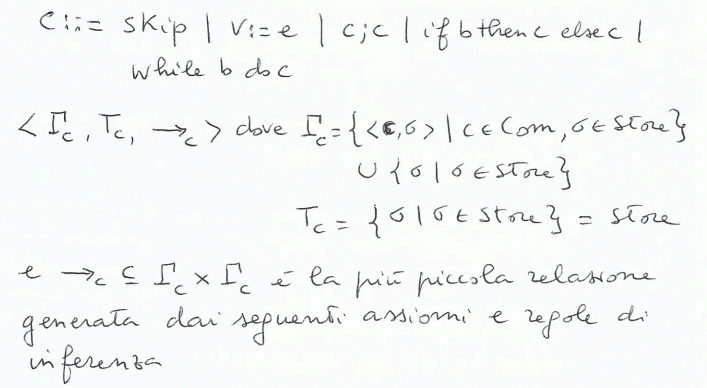 c::= skip | v:=e | c;c | if b then c else c |
while b do c
< Γc, Tc, →c > dove Γc = {<c,σ> | c ∈ Com, σ ∈ Store}
∪ {σ | σ ∈ Store}
Tc = {σ | σ ∈ Store} = Store
e →c ⊆ Γc × Γc è la più piccola relazione
generata dai seguenti assiomi e regole di
inferenza